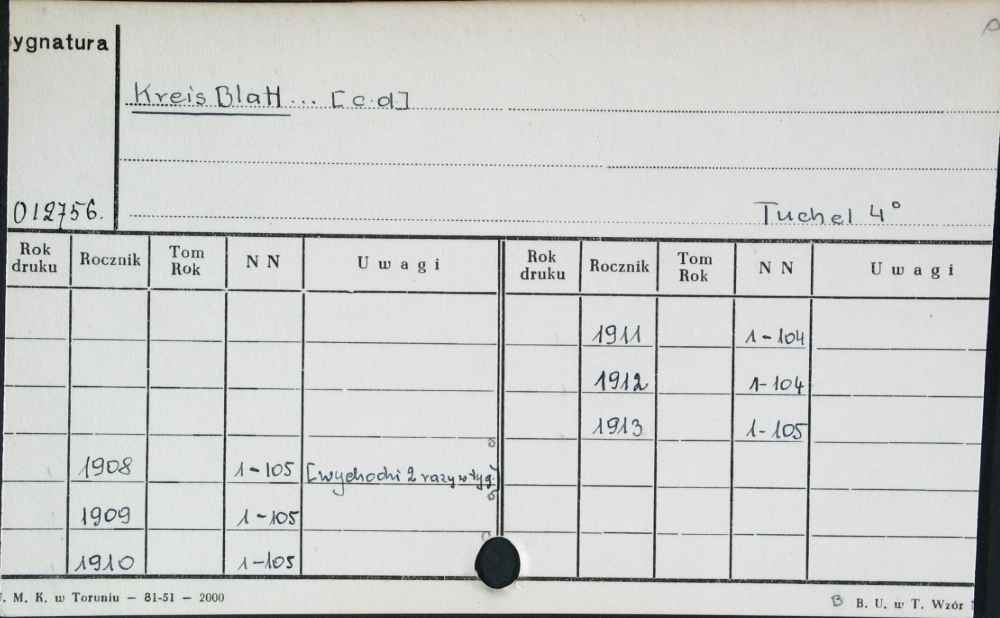 ygnatura
Kreis Blatt ... [c.d]
012756.
Tuchel 4°
Rok druku Rocznik Tom Rok N N Uwagi Rok druku Rocznik Tom Rok N N Uwagi
1911 1-104
1912 1-104
1913 1-105
1908 1-105 [wychodzi 2 razy w tyg.]
1909 1-105
1910 1-105
. M. K. w Toruniu — 81-51 — 2000
B B. U. w T. Wzór